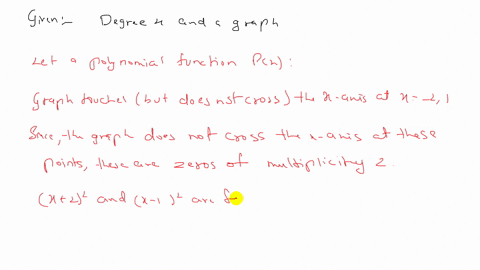 Given:- Degree 4 and a graph
Let a polynomial function P(x):
Graph touches (but does not cross) the x-axis at x=-2,1
Since, the graph does not cross the x-axis at these
points, these are zeros of multiplicity 2.
(x+2)² and (x-1)² are f